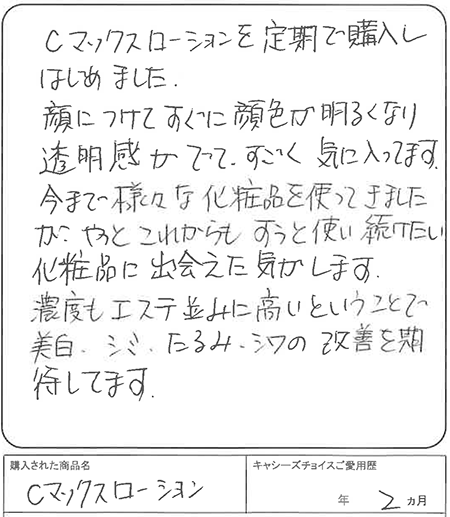 Cマックスローションを定期で購入し
はじめました.
顔につけてすぐに顔色が明るくなり
透明感がでて、すごく気に入ってます.
今まで様々な化粧品を使ってきました
が、やっとこれからもずうと使い続けたい
化粧品に出会えた気がします.
濃度もエステ並みに高いということで
美白、シミ、たるみ、シワの改善を期
待してます.
購入された商品名
キャシーズチョイスご愛用歴
Cマックスローション
年 2ヵ月